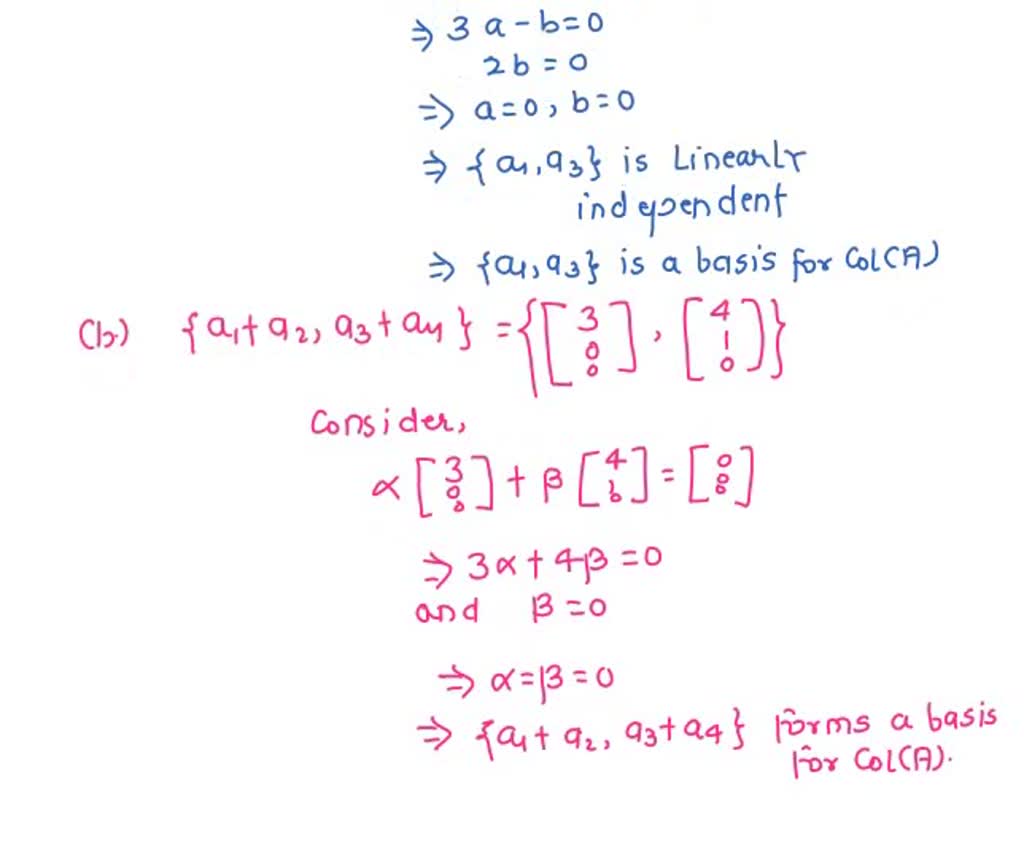 ⇒ 3a - b = 0
2b = 0
⇒ a = 0, b = 0
⇒ {a₁, a₃} is Linearly
independent
⇒ {a₁, a₃} is a basis for Col(A)
(b.) {a₁ + a₂, a₃ + a₄} = {[3 0 0], [4 1 0]}
Consider,
α [3 0 0] + β [4 1 0] = [0 0 0]
⇒ 3α + 4β = 0
and β = 0
⇒ α = β = 0
⇒ {a₁ + a₂, a₃ + a₄} forms a basis
for Col(A).